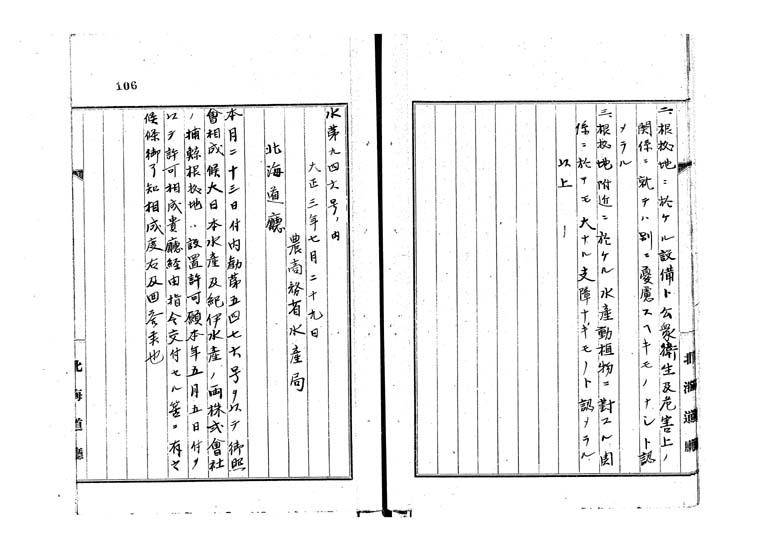 二、根拠地ニ於ケル設備ト公衆衛生及危害上ノ
関係ニ就テハ別ニ憂慮スヘキモノナシト認
メラル
三、根拠地附近ニ於ケル水産動植物ニ対スル関
係ニ於テモ大ナル支障ナキモノト認メラル
以上
北海道廳
106
水第九四六号ノ内
大正三年七月二十九日
農商務省水産局
北海道廳
本月二十三日付内勧第五四七六号ヲ以テ御照
會相成候大日本水産及紀伊水産ノ両株式會社
ノ捕鯨根拠地設置許可願本年五月五日付ヲ
以テ許可相成貴廳経由指令交付セル筈ニ有之
候條御了知相成度右及回答候也
北海道廳